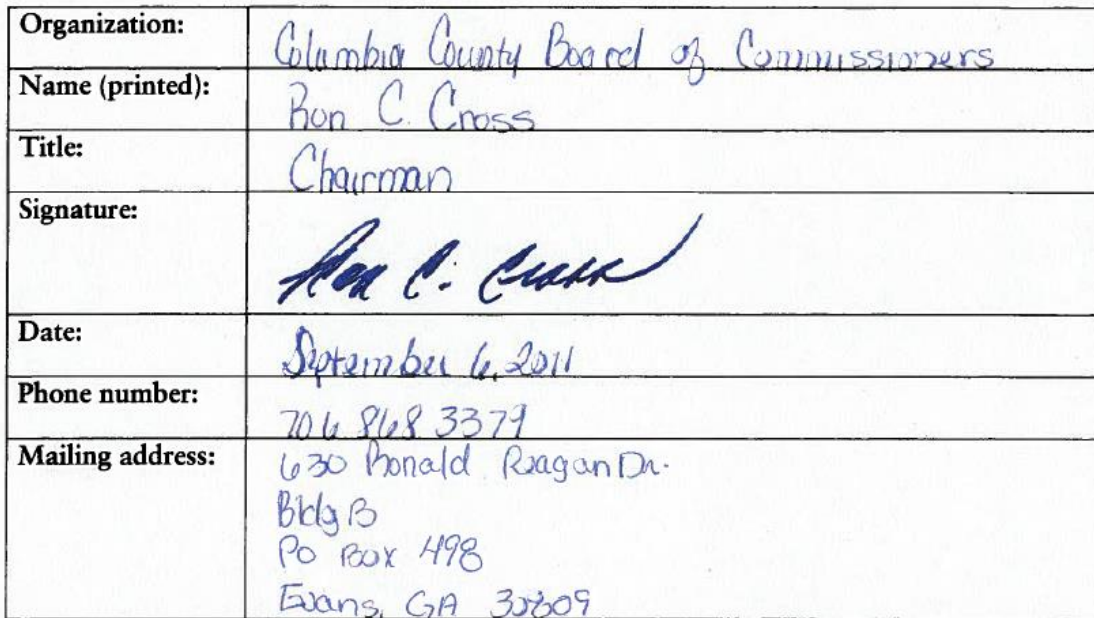 Organization:
Columbia County Board of Commissioners
Name (printed):
Ron C. Cross
Title:
Chairman
Signature:
Ron C. Cross
Date:
September 6, 2011
Phone number:
706 868 3379
Mailing address:
630 Ronald Reagan Dr.
Bldg B
PO BOX 498
Evans, GA 30809